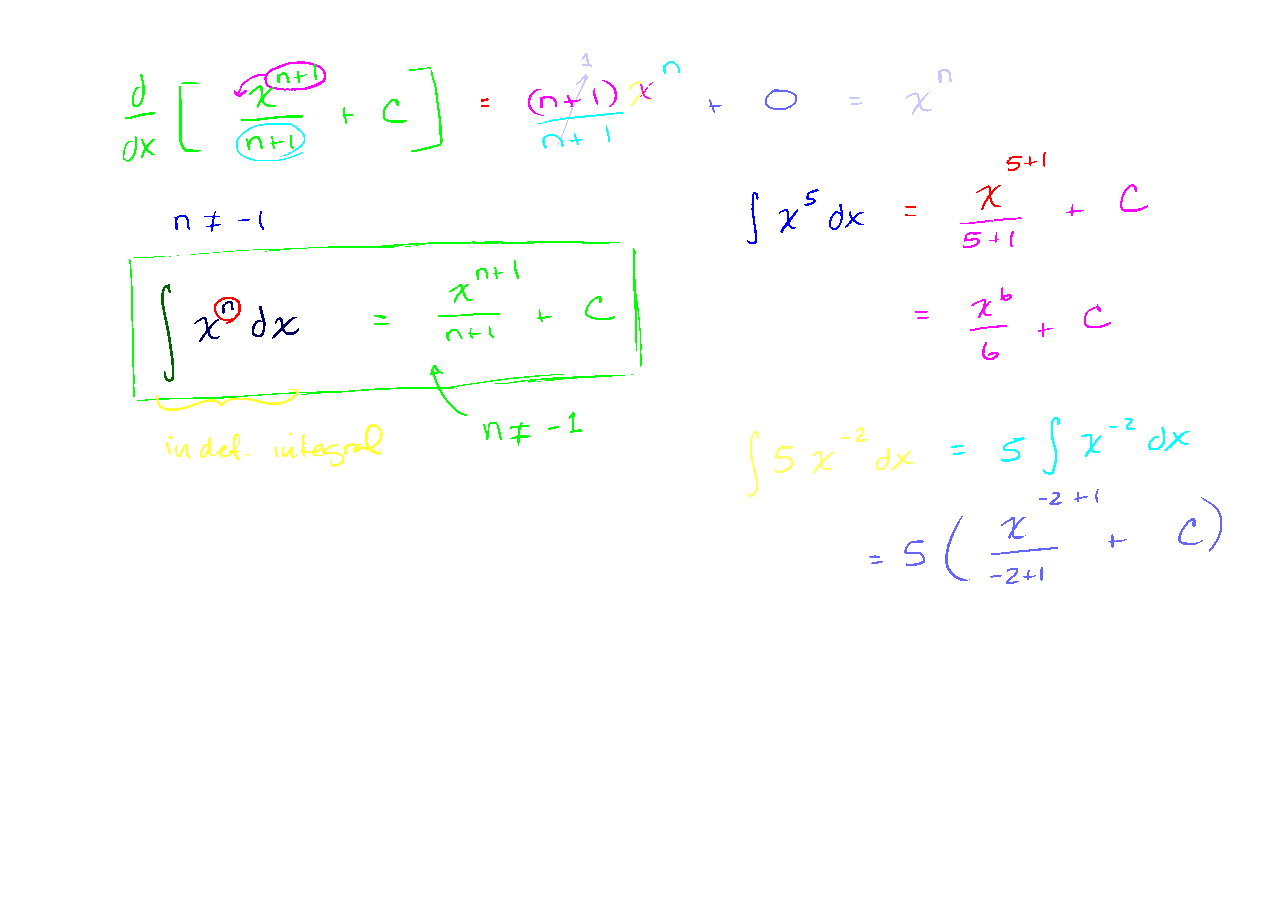 d/dx [ x^(n+1)/(n+1) + C ] = (n+1) x^n/(n+1) + 0 = x^n
1
n ≠ -1
∫ x^n dx = x^(n+1)/(n+1) + C
n ≠ -1
indef. integral
∫ x^5 dx = x^(5+1)/(5+1) + C
= x^6/6 + C
∫ 5 x^(-2) dx = 5 ∫ x^(-2) dx
= 5 ( x^(-2+1)/(-2+1) + C )